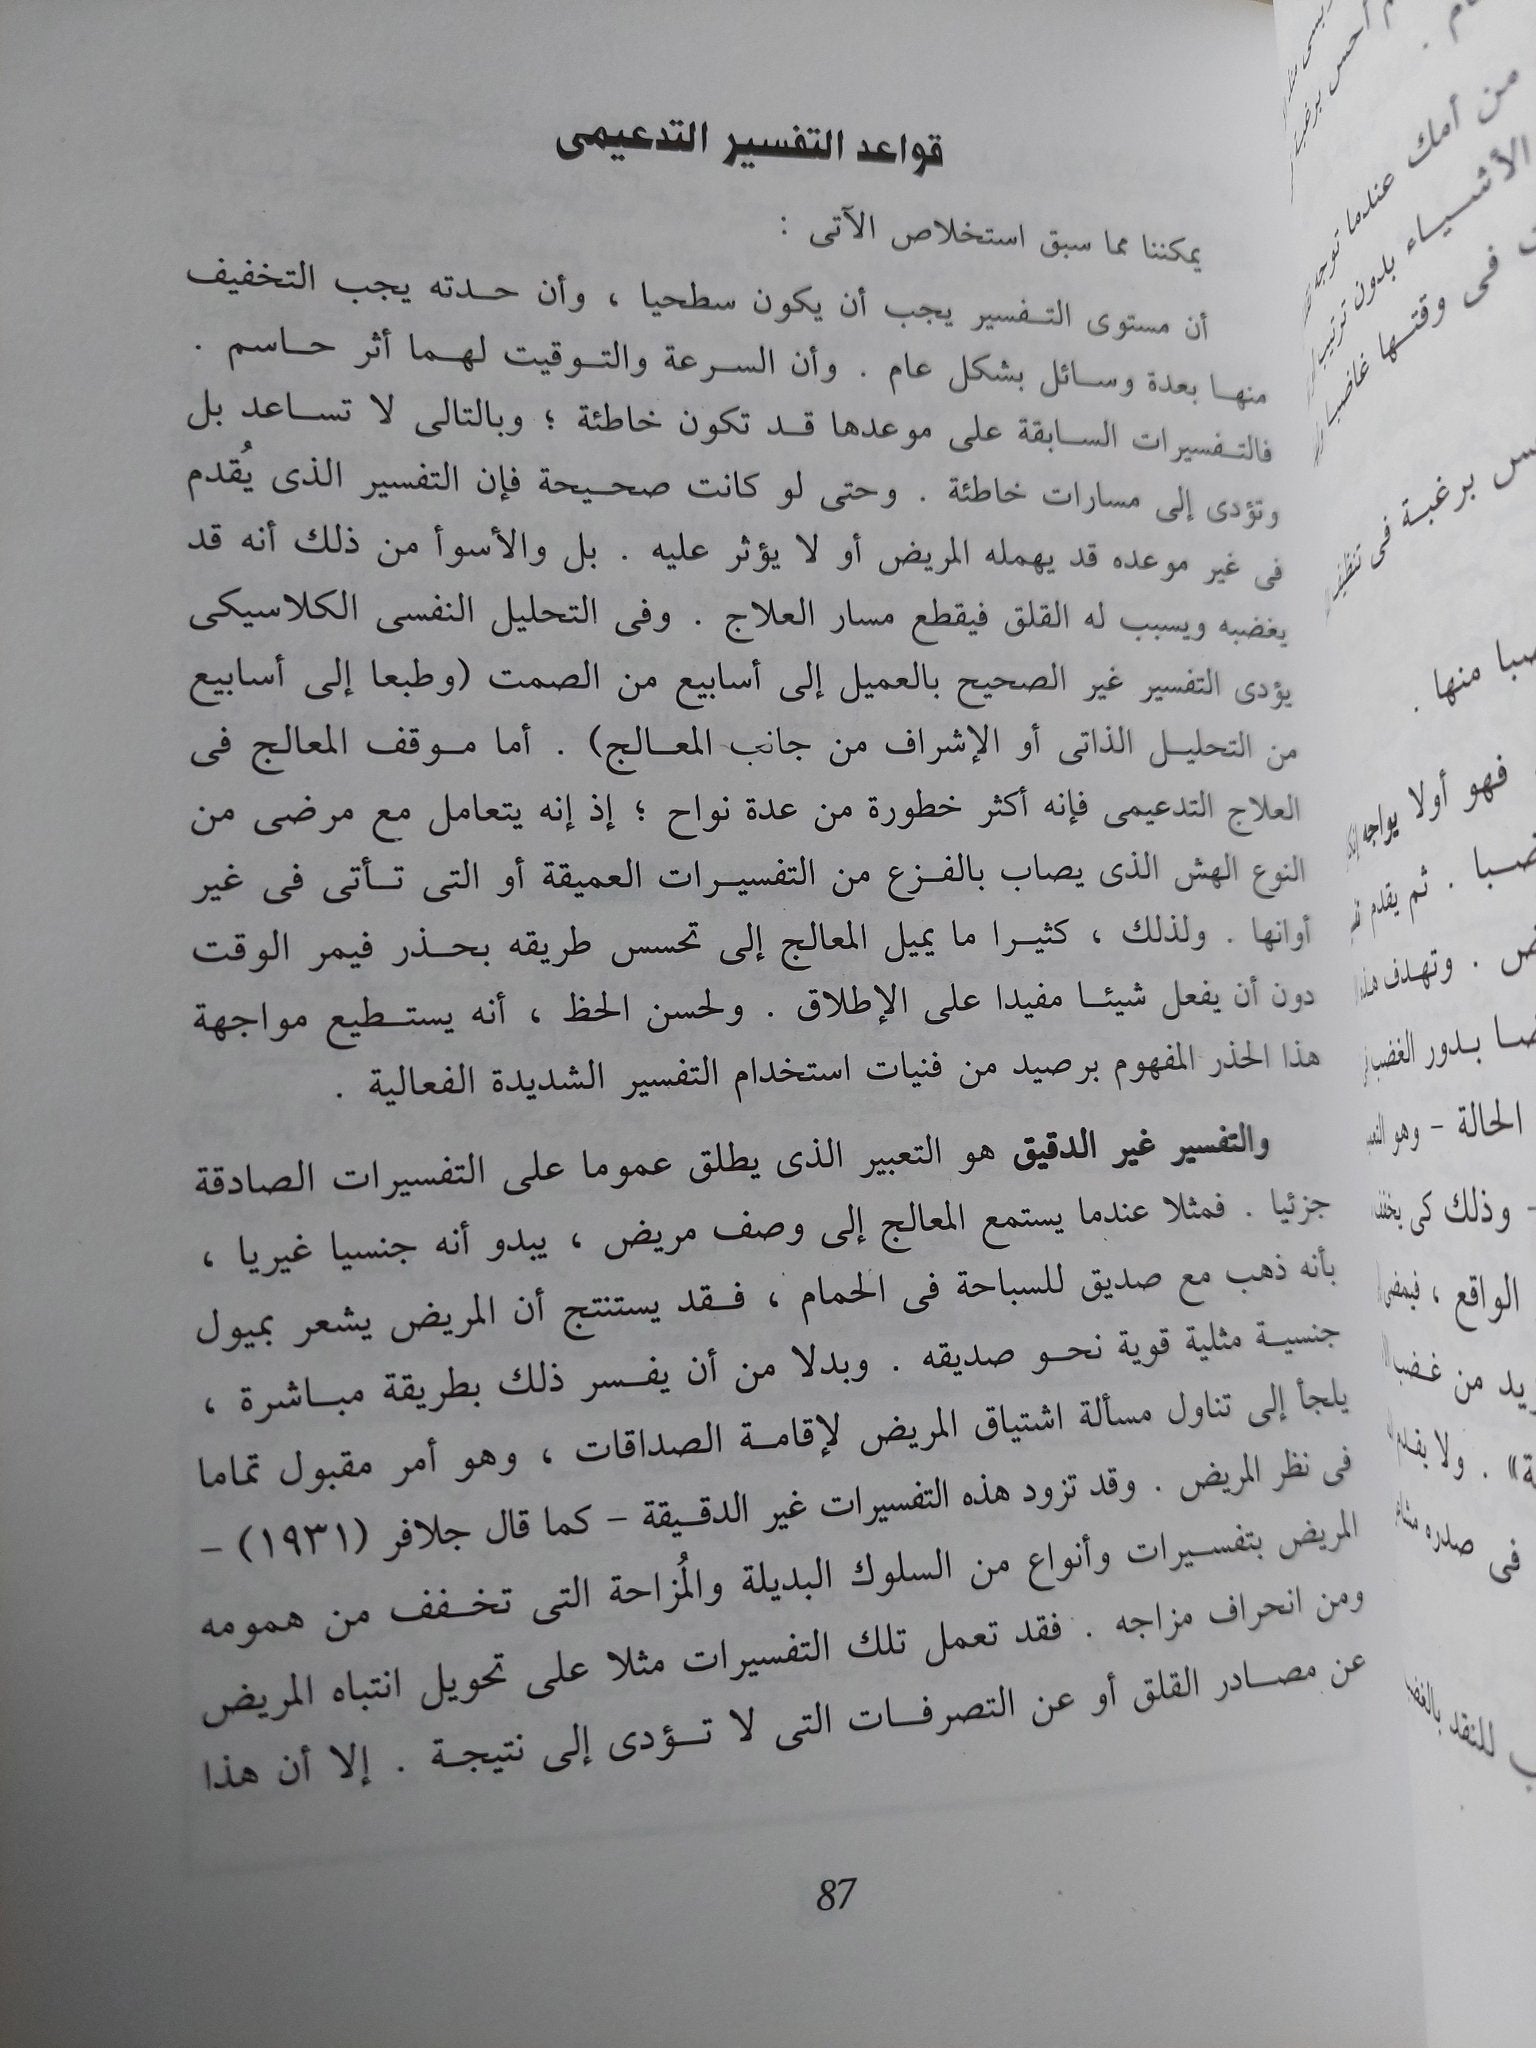 قواعد التفسير التدعيمى
يمكننا مما سبق استخلاص الآتى :
أن مستوى التفسير يجب أن يكون سطحيا ، وأن حدته يجب التخفيف
منها بعدة وسائل بشكل عام . وأن السرعة والتوقيت لهما أثر حاسم .
فالتفسيرات السابقة على موعدها قد تكون خاطئة ؛ وبالتالى لا تساعد بل
وتؤدى إلى مسارات خاطئة . وحتى لو كانت صحيحة فإن التفسير الذى يُقدم
فى غير موعده قد يهمله المريض أو لا يؤثر عليه . بل والأسوأ من ذلك أنه قد
يغضبه ويسبب له القلق فيقطع مسار العلاج . وفى التحليل النفسى الكلاسيكى
يؤدى التفسير غير الصحيح بالعميل إلى أسابيع من الصمت (وطبعا إلى أسابيع
من التحليل الذاتى أو الإشراف من جانب المعالج) . أما موقف المعالج فى
العلاج التدعيمى فإنه أكثر خطورة من عدة نواح ؛ إذ إنه يتعامل مع مرضى من
النوع الهش الذى يصاب بالفزع من التفسيرات العميقة أو التى تأتى فى غير
أوانها . ولذلك ، كثيرا ما يميل المعالج إلى تحسس طريقه بحذر فيمر الوقت
دون أن يفعل شيئا مفيدا على الإطلاق . ولحسن الحظ ، أنه يستطيع مواجهة
هذا الحذر المفهوم برصيد من فنيات استخدام التفسير الشديدة الفعالية .
والتفسير غير الدقيق هو التعبير الذى يطلق عموما على التفسيرات الصادقة
جزئيا . فمثلا عندما يستمع المعالج إلى وصف مريض ، يبدو أنه جنسيا غيريا ،
بأنه ذهب مع صديق للسباحة فى الحمام ، فقد يستنتج أن المريض يشعر بميول
جنسية مثلية قوية نحو صديقه . وبدلا من أن يفسر ذلك بطريقة مباشرة ،
يلجأ إلى تناول مسألة اشتياق المريض لإقامة الصداقات ، وهو أمر مقبول تماما
فى نظر المريض . وقد تزود هذه التفسيرات غير الدقيقة – كما قال جلافر (١٩٣١) –
المريض بتفسيرات وأنواع من السلوك البديلة والمُزاحة التى تخفف من همومه
ومن انحراف مزاجه . فقد تعمل تلك التفسيرات مثلا على تحويل انتباه المريض
عن مصادر القلق أو عن التصرفات التى لا تؤدى إلى نتيجة . إلا أن هذا
87
من أمك عندما توجه
الأشياء بدون ترتيب
فى وقتها غاضبا
برغبة فى
منها .
فهو أولا يواجه
. ثم يقدم
. وتهدف
بدور الغضب
الحالة – وهو
– وذلك كى
الواقع ، فيمضى
من غضب
. ولا يقدم
فى صدره
للنقد